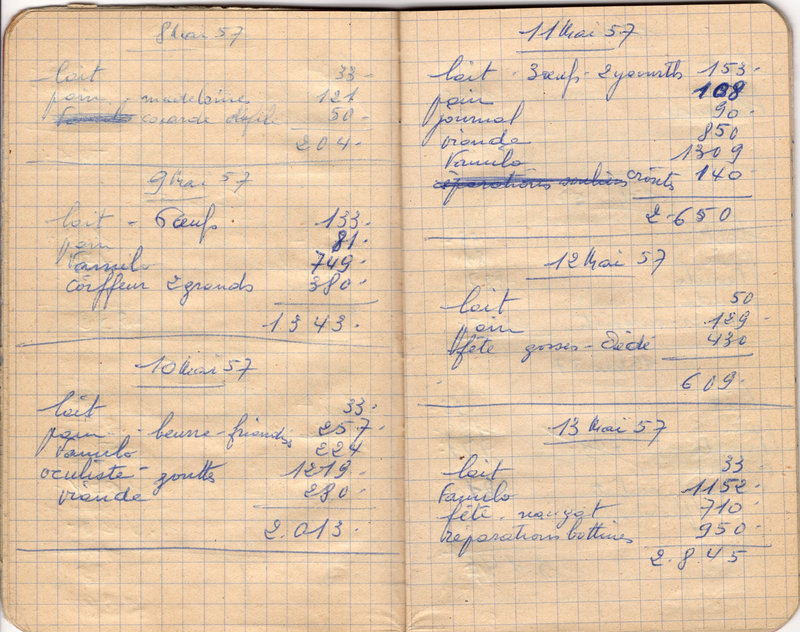 8 Mai 57
lait 33-
pain - madeleines 121
cocarde défilé 50-
204-
9 Mai 57
lait - 6 œufs 133-
pain 81-
Familo 749-
coiffeur 2 grands 380-
1343-
10 Mai 57
lait 33-
pain - beurre - friandises 257-
Familo 224
oculiste - gouttes 1219-
viande 280-
2.013-
11 Mai 57
lait - 3 œufs - 2 yaourths 153-
pain 108
journal 90-
viande 850
Familo 1309
réparations souliers 140-
2-650
12 Mai 57
lait 50
pain 129-
fête gosses - Dédé 430
609-
13 Mai 57
lait 33
Familo 1152-
fête - nougat 710-
réparations bottines 950-
2.845